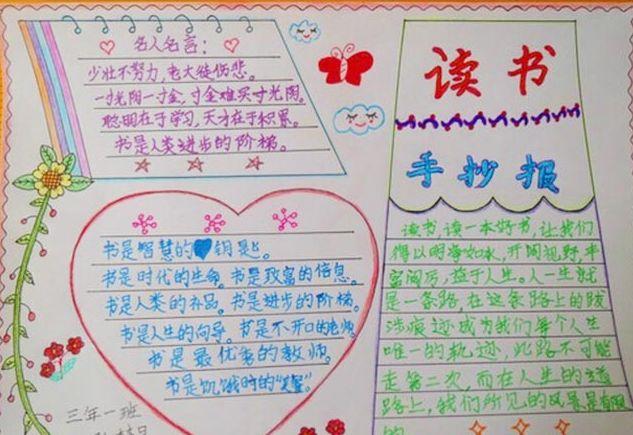 名人名言：
少壮不努力，老大徒伤悲。
一寸光阴一寸金，寸金难买寸光阴。
聪明在于学习，天才在于积累。
书是人类进步的阶梯。
读书
手抄报
书是智慧的钥匙。
书是时代的生命。书是致富的信息。
书是人类的补品。书是进步的阶梯。
书是人生的向导。书是不开口的老师。
书是最优秀的教师。
书是饥饿时的
读书，读一本好书，让我们
得以明净如水，开阔视野，丰
富阅历，益于人生。人一生就
是一条路，在这条路上的跋
涉痕迹成为我们每个人生
唯一的轨迹，此路不可能
走第二次，而在人生的道
路上，我们所见的风景是有限
的
三年一班